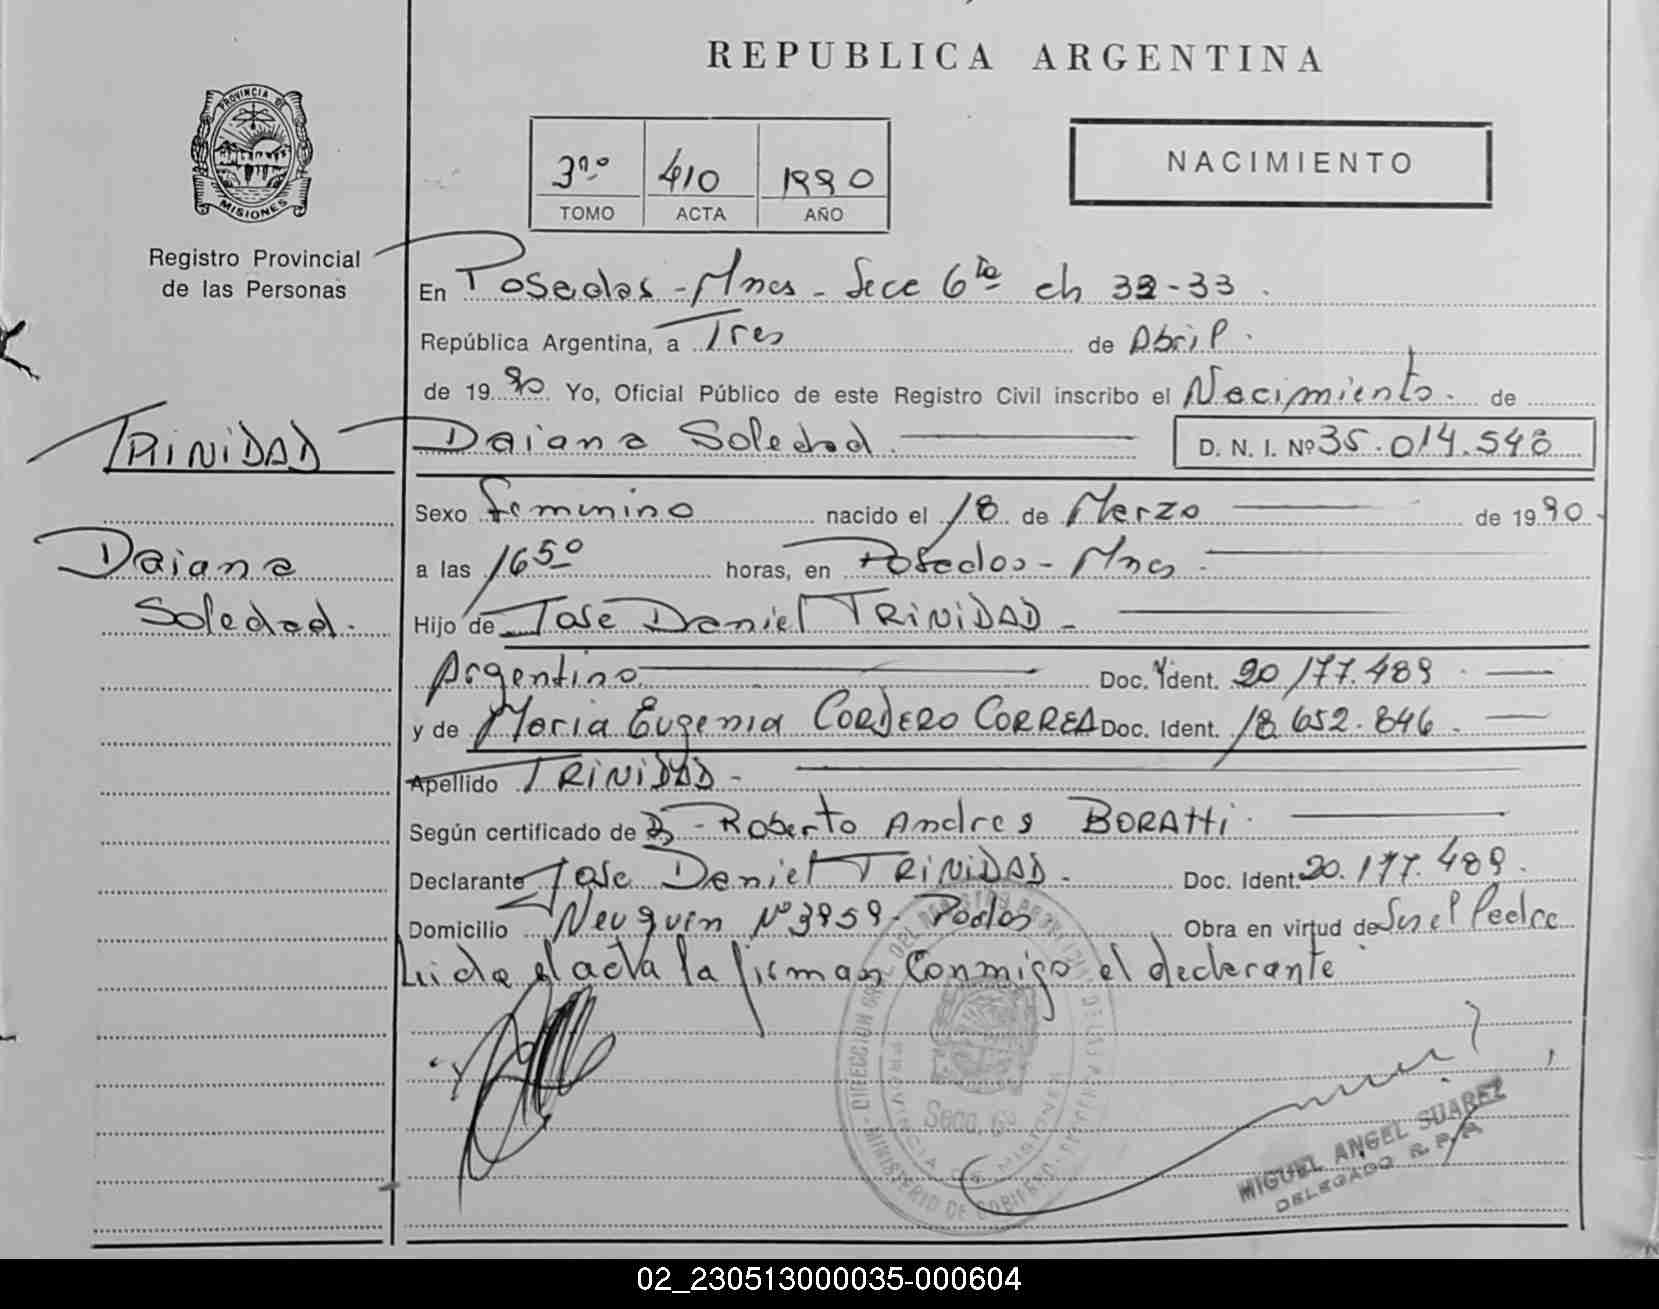 REPUBLICA ARGENTINA
PROVINCIA DE
MISIONES
Registro Provincial
de las Personas
3º 410 1990
TOMO ACTA AÑO
NACIMIENTO
En Posadas - Mnes - Secc 6ta ch 32-33.
República Argentina, a Tres de Abril.
de 1990. Yo, Oficial Público de este Registro Civil inscribo el Nacimiento. de
TRINIDAD
Daiana Soledad. D. N. I. Nº 35.014.548
Sexo Femenino nacido el 18 de Marzo de 1990.
Daiana
a las 16 50 horas, en Posadas - Mnes.
Soledad.
Hijo de Jose Daniel TRINIDAD -
Argentino Doc. Ident. 20 177.489
y de Maria Eugenia CORDERO CORREA Doc. Ident. 18.652.846.
Apellido TRINIDAD -
Según certificado de Dr - Roberto Andres BORATTI.
Declarante Jose Daniel TRINIDAD. Doc. Ident. 20.177.489.
Domicilio Neuquen Nº 3959 - Pdas Obra en virtud de Ser el Padre
Leida el acta la firman Conmigo el declarante
DIRECCION GRAL DEL REGISTRO PROVINCIAL DE LAS PERSONAS
MINISTERIO DE GOBIERNO
PROVINCIA DE MISIONES
Secc. 6ª
MIGUEL ANGEL SUAREZ
DELEGADO R.P.P.
02_230513000035-000604